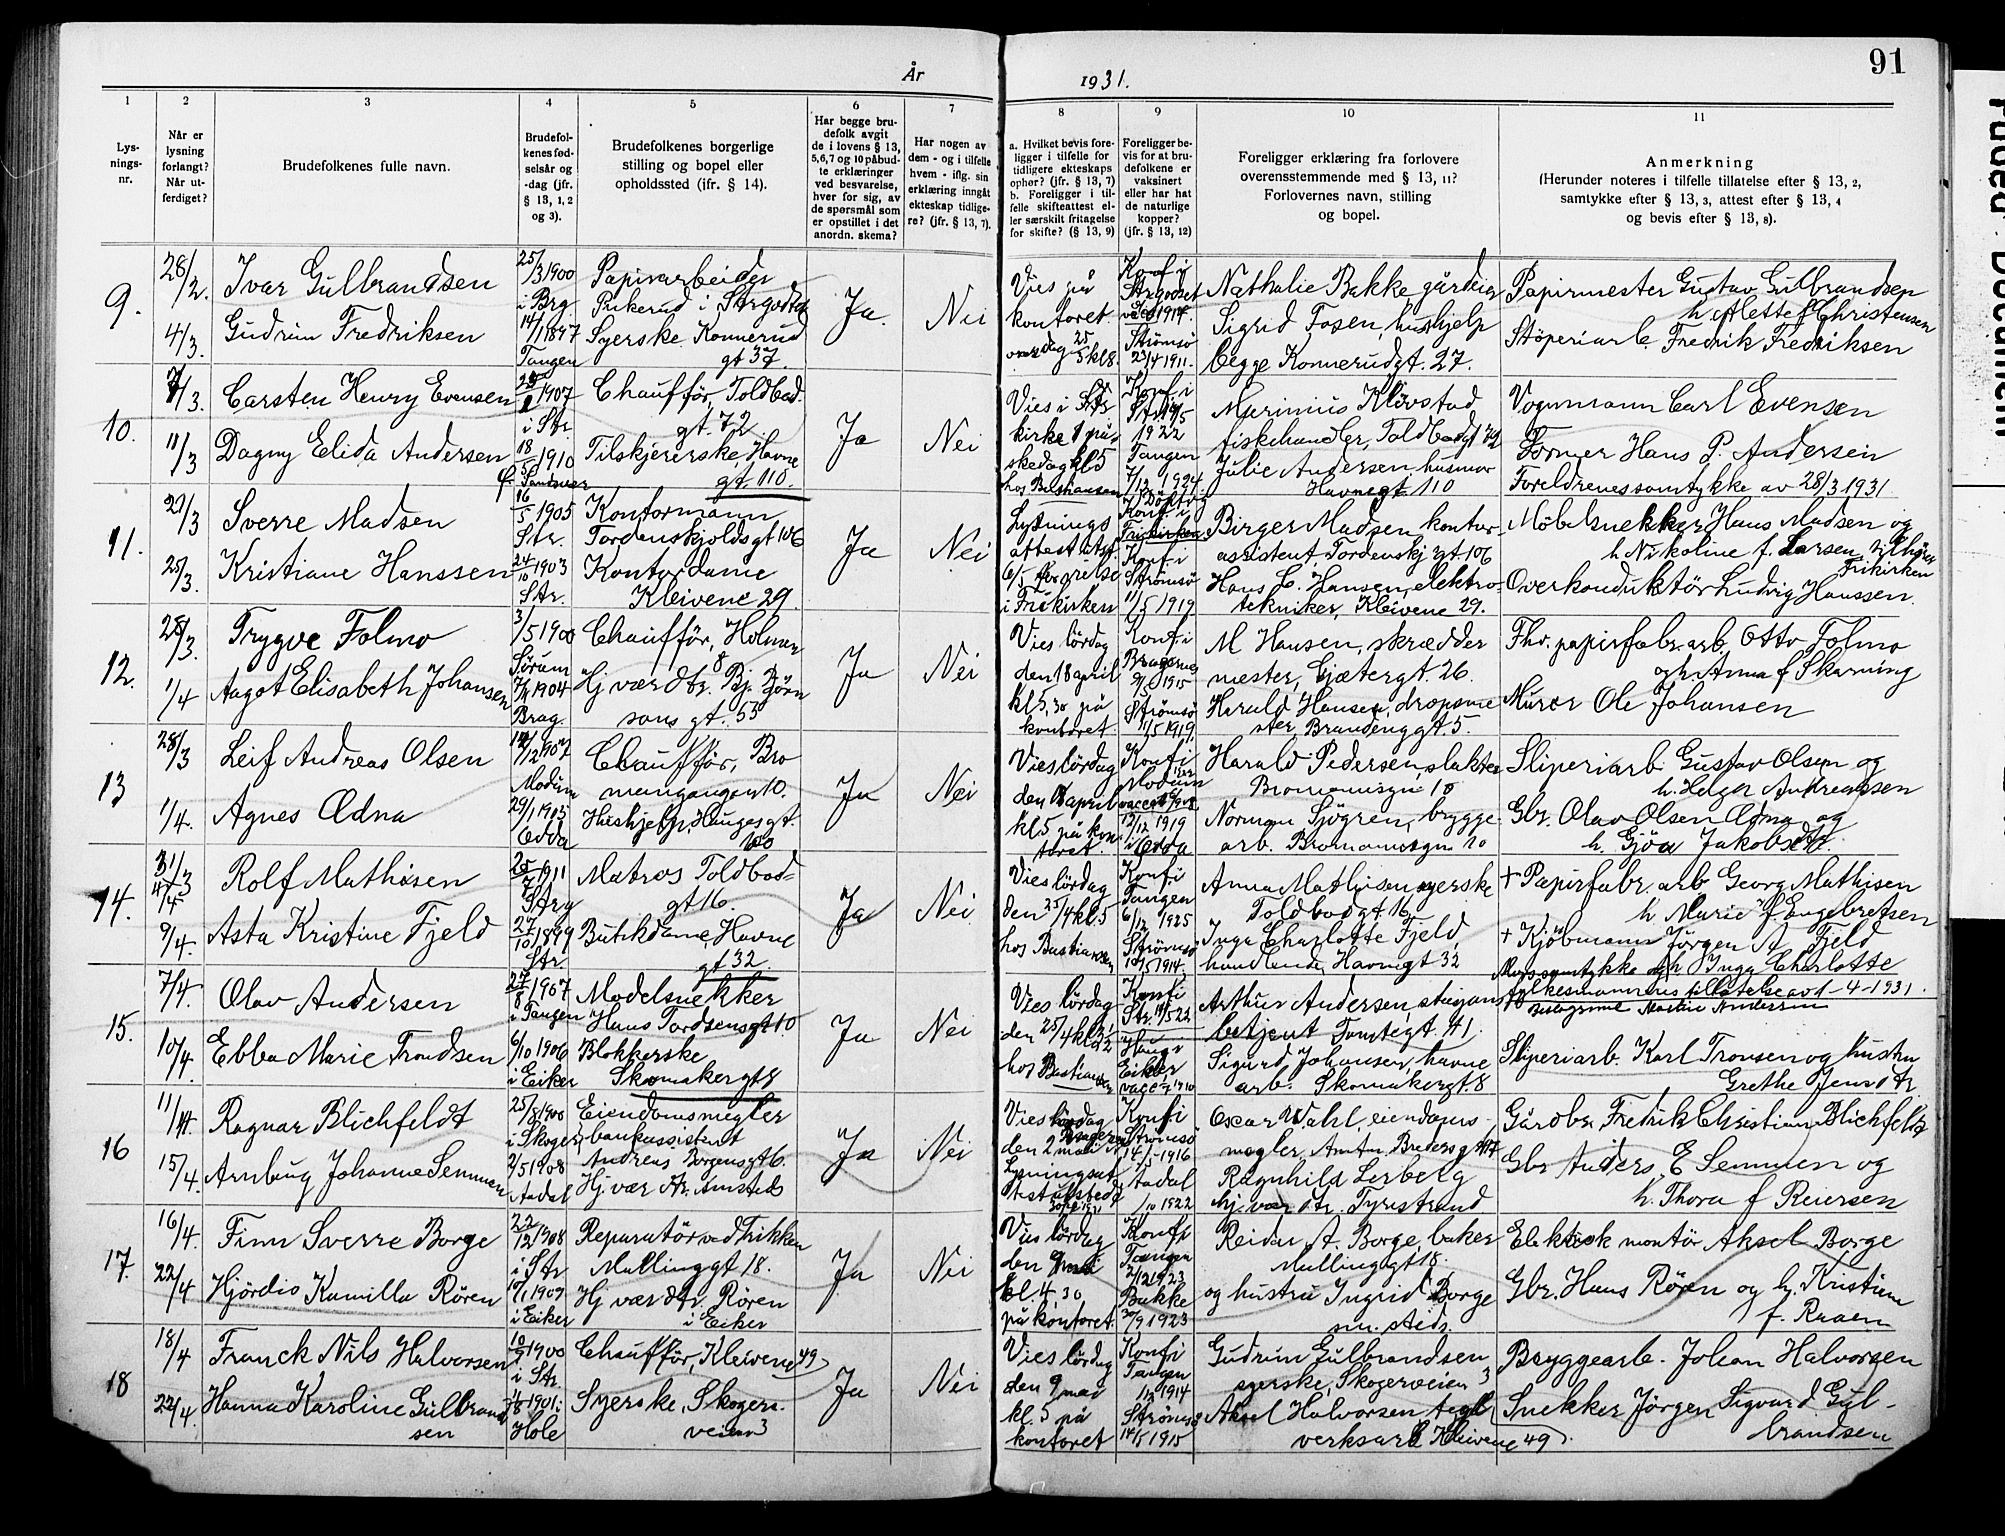 91
År 1931.
1 2 3 4 5 6 7 8 9 10 11
Lys-
nings-
nr.
Når er
lysning
forlangt?
Når ut-
ferdiget?
Brudefolkenes fulle navn.
Brudefol-
kenes fød-
selsår og
-dag (jfr.
§ 13, 1, 2
og 3).
Brudefolkenes borgerlige
stilling og bopel eller
opholdssted (ifr. § 14).
Har begge bru-
defolk avgit
de i lovens § 13,
5,6,7 og 10 påbud-
te erklæringer
ved besvarelse,
hver for sig, av
de spørsmål som
er opstillet i det
anordn. skema?
Har nogen av
dem - og i tilfelle
hvem - iflg. sin
erklæring inngåt
ekteskap tidlige-
re? (jfr. § 13, 7).
a. Hvilket bevis fore-
ligger i tilfelle for
tidligere ekteskaps
ophør? (jfr. § 13, 7)
b. Foreligger i til-
felle skifteattest el-
ler særskilt fritagelse
for skifte? (§ 13, 9)
Foreligger be-
vis for at bru-
defolkene er
vaksinert
eller har hat
de naturlige
kopper?
(jfr. § 13, 12)
Foreligger erklæring fra forlovere
overensstemmende med § 13, 11?
Forlovernes navn, stilling
og bopel.
Anmerkning
(Herunder noteres i tilfelle tillatelse efter § 13, 2,
samtykke efter § 13, 3, attest efter § 13, 4
og bevis efter § 13, 8).
9.
28/2.
4/3.
Ivar Gulbrandsen
Gudrun Fredriksen
25/3 1900
i Brg
14/1 1897
Tangen
Papirarbeider
i Strgodset
Syerske Konnerud
gt 37.
Ja.
Nei
Vies på
kontoret
onsdag 25/3 kl 8
Konf i
Strgodset
1914.
Strømsø
23/4 1911.
Nathalie Bakke gårdeier
Sigrid Fosen, hushjelp
begge Konnerudgt. 27.
Papirmester Gustav Gulbrandsen
h Alette f Christensen
Støperiarb. Fredrik Fredriksen
10.
7/3.
11/3
Carsten Henry Evensen
Dagny Elida Andersen
1907
i Str.
18 1910
Chauffør, Toldbod.
gt. 72
Tilskjærerske, Havne
gt. 110.
Ja
Nei
Vies i Str
kirke 1 på-
skedag kl 5
hos Bastiansen
Konf i
Str
1922
Tangen
7/12 1924
Marinius Klövstad
fiskehandler, Toldbodgt 72
Julie Andersen husmor
Havnegt 110
Vognmann Carl Evensen
Former Hans P. Andersen
Foreldrenes samtykke av 28/3 1931.
11.
21/3
25/3
Sverre Madsen
Kristiane Hanssen
16/5 1905
Str.
24/10 1903
Str.
Kontormann
Tordenskjoldsgt 106
Kontordame
Kleivene 29.
Ja
Nei
Lysnings
attest utst.
6/5 for vielse
i Frikirken
Frikirken
Konf i
Strømsø
11/5 1919
Birger Madsen kontor-
assistent, Tordenskj gt 106
Hans L. Hansen, elektro-
tekniker, Kleivene 29.
Møbelsnekker Hans Madsen og
h Nikoline f. Larsen, tilhører
Frikirken
Overkonduktør Ludvig Hanssen.
12.
28/3.
1/4
Trygve Tolmo
Aagot Elisabeth Johansen
3/5 1900
Sørum
1904
Brag.
Chauffør, Holmen
8
Hj vær dtr. Bj. Bjørn
sons gt. 53
Ja
Nei
Vies lördag
den 18 april
kl 5,30 på
kontoret.
Konf i
Bragernes
1915
Strømsø
1919.
M Hansen, skrædder
mester, Gjætergt. 26.
Harald Hansen, dropsme
ster, Brandenggt. 5.
Fhv. papirfabr. arb. Otto Tolmo
og h Anna f Skarning
Murer Ole Johansen
13
28/3
1/4.
Leif Andreas Olsen
Agnes Ædna
12 1907
Modum
29/1 1905
Odda
Chauffør, Bro
mangangen 10.
Hushjelp, Haugesgt.
100
Ja
Nei
Vies lördag
den april
kl 5 på kon
toret.
Konf i
Modum
1919
i Odda
Harald Pedersen, slakter
10
Norman Sjögren, brygge
arb. 10
Sliperiarb. Gustav Olsen og
h. Helga Andreassen
Gbr. Olav Olsen Ædna og
h. Gjöa Jakobsdtr.
14.
31/3
4/4
9/4.
Rolf Mathisen
Asta Kristine Fjeld
25 1911
Strg
27/10 1899
Str.
Matros Toldbod-
gt 16.
Butikdame, Havne
gt 32.
Ja
Nei
Vies lördag
den 25/4 kl 5
hos Bastiansen
Konf i
Tangen
6/12 1925
Strömsö
1914.
Anna Mathisen syerske
Toldbodgt. 16.
Inga Charlotte Fjeld,
handlende, Havnegt 32
+ Papirfabr. arb Georg Mathisen
h Marie f Engebretsen
+ Kjöbmann Jörgen A Fjeld
og h Inga Charlotte
Mors samtykke
fylkesmannens tillatelse av 1-4-1931.
15.
7/4.
10/4.
Olav Andersen
Ebba Marie Trondsen
27/8 1907
i Tangen
6/10 1906
i Eiker
Modelsnekker
Hans Tordsensgt 10
Blokkerske
Skomakergt 8
Ja
Nei
Vies lördag
den 25/4 kl
hos Bastiansen
Konf i
Str.
Haug i
Eiker
Arthur Andersen, stasjons
betjent Tomtegt. 41.
Sigurd Johansen, havne
arb. Skomakergt 8
Sliperiarb. Karl Tronsen og hustru
Grethe
16
11/4.
15/4.
Ragnar Blichfeldt
Arnbug Johanne Semmen
25/8 1900
i Skoger
2/5 1908
Aadal
Eiendomsmegler
bankassistent
Andreas Borgensgt 6.
Hj. vær dtr. Amsteds
Ja
Nei
Vies lördag
den 2 mai i
Konf i
Strømsö
1916
Aadal
1/10 1922
Oscar Wahl, eiendoms-
megler, Amtm. Bredersgt
Ragnhild Lerberg
hj. vær dtr. Tyristrand
Gårdbr. Fredrik Christian Blichfeldt
Gbr Anders E Semmen og
h. Thora f Reiersen
17.
16/4.
22/4
Finn Sverre Borge
Hjördis Kamilla Rören
22/12 1908
i Str
1907
i Eiker
Reparatör ved Trikken
Mallinggt 18.
Hj vær dtr. Rören
i Eiker
Ja
Nei
Vies lördag
den 9 mai
kl. 4,30
på kontoret.
Konf i
Tangen
2/12 1923
Bakke
30/9 1923
Reidar A. Borge, baker
Mallinggt 18.
og hustru Ingrid Borge
sm. steds.
Elektrisk montör Aksel Borge
Gbr. Hans Rören og h. Kristine
f. Raaen
18
18/4
22/4.
Franck Nils Halvorsen
Hanna Karoline Gulbrand
sen
1900
i Str.
1901 i
Hole
Chauffør, Kleivene 49
Syerske, Skogers-
veien 3
Ja
Nei
Vies lördag
den 9 mai
kl. 5 på
kontoret
Konf i
Tangen
1914
Strømsø
14/5 1915
Gudrun Gulbrandsen
syerske, Skogerveien 3
Aksel Halvorsen tegl
verksarb Kleivene 49.
Bryggearb. Johan Halvorsen
Snekker Jörgen Sigvard Gul-
brandsen